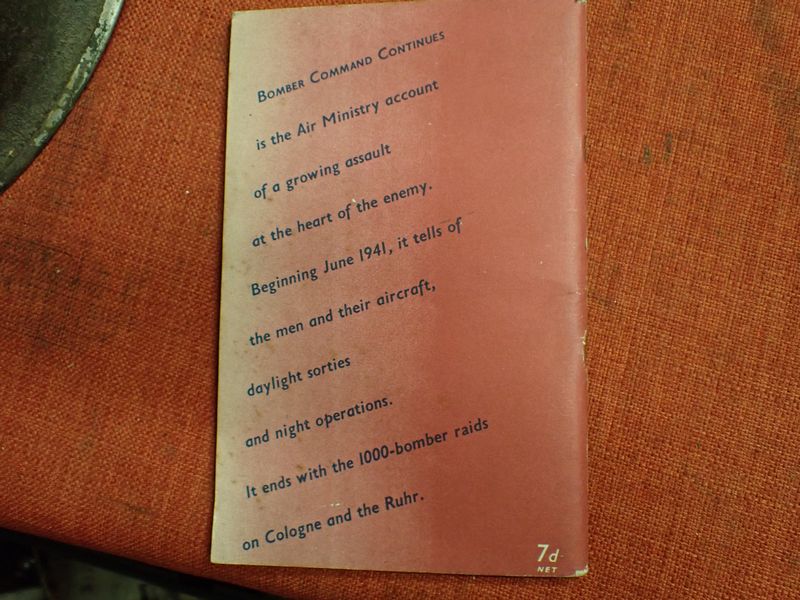 BOMBER COMMAND CONTINUES
is the Air Ministry account
of a growing assault
at the heart of the enemy.
Beginning June 1941, it tells of
the men and their aircraft,
daylight sorties
and night operations.
It ends with the 1000-bomber raids
on Cologne and the Ruhr.
7d
NET